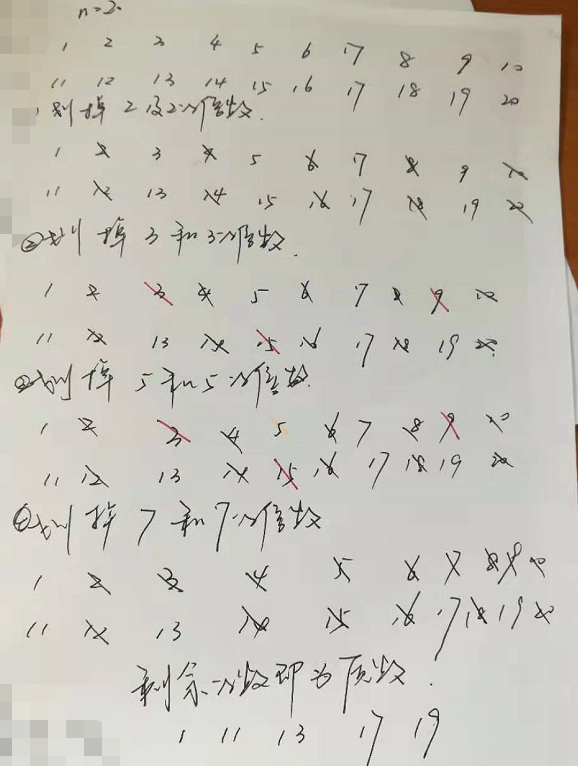 n=20
1 2 3 4 5 6 7 8 9 10
11 12 13 14 15 16 17 18 19 20
1划掉2及2的倍数.
1 2 3 4 5 6 7 8 9 10
11 12 13 14 15 16 17 18 19 20
②划掉3和3的倍数.
1 2 3 4 5 6 7 8 9 10
11 12 13 14 15 16 17 18 19 20
③划掉5和5的倍数.
1 2 3 4 5 6 7 8 9 10
11 12 13 14 15 16 17 18 19 20
④划掉7和7的倍数
1 2 3 4 5 6 7 8 9 10
11 12 13 14 15 16 17 18 19 20
剩余的数即为质数.
1 11 13 17 19